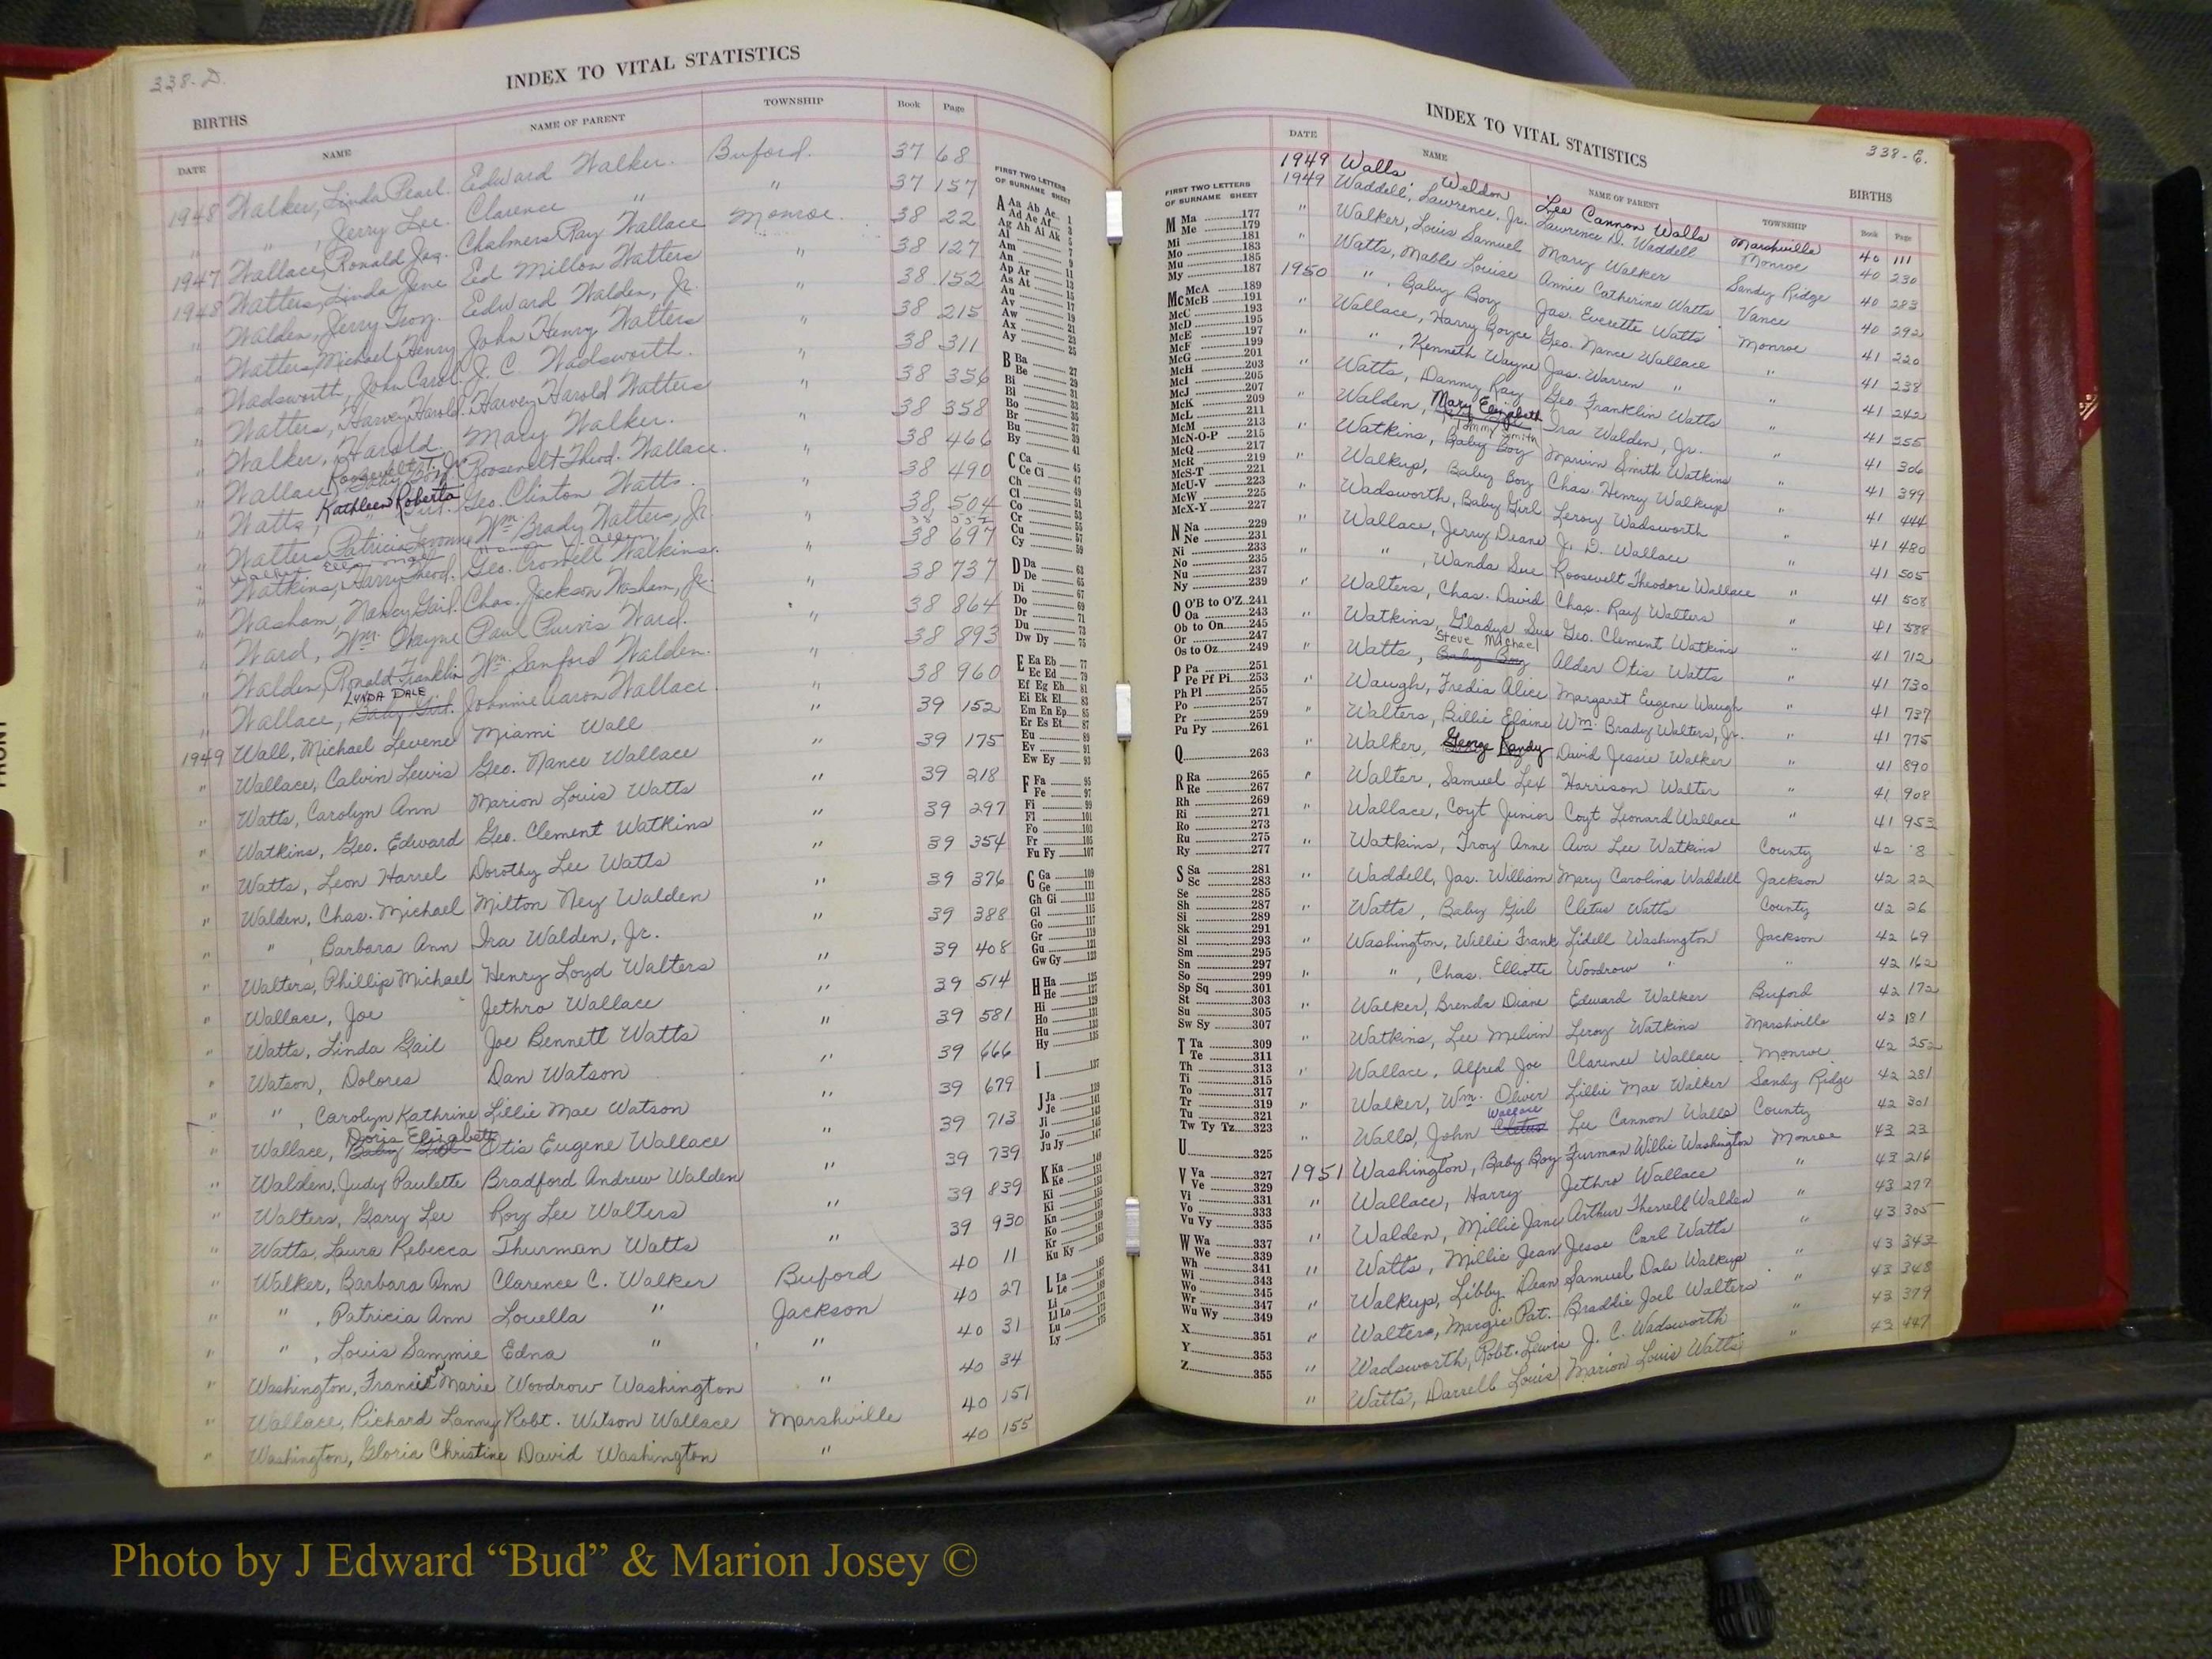 338-D.
INDEX TO VITAL STATISTICS
BIRTHS
DATE NAME NAME OF PARENT TOWNSHIP Book Page
1948 Walker, Linda Pearl. Edward Walker. Buford. 37 68
" " , Jerry Lee. Clarence " " 37 157
1947 Wallace, Ronald Jas. Chalmers Ray Wallace Monroe. 38 22
1948 Watters, Linda Jene Ed Millon Watters " 38 127
" Walden, Jerry Troy. Edward Walden, Jr. " 38 152
" Watters, Michael Henry John Henry Watters " 38 215
" Wadsworth, John Carol J. C. Wadsworth. " 38 311
" Watters, Harvey Harold. Harvey Harold Watters " 38 356
" Walker, Harold. Mary Walker. " 38 358
" Wallace, Roosevelt T. Jr. Roosevelt Theod. Wallace. " 38 466
" Watts, Kathleen Roberta Geo. Clinton Watts. " 38 490
" Watters, Patricia Levonne Wm. Brady Watters, Jr. " 38 504
Walker Ella Mae
" Watkins, Harry Theod. Geo. Crowell Watkins. " 38 697
" Washam, Nancy Gail. Chas. Jackson Washam, Jr. " 38 737
" Ward, Wm. Wayne Paul Purvis Ward. " 38 864
" Walden, Ronald Franklin Wm. Sanford Walden. " 38 893
" Wallace, Baby Girl. LYNDA DALE Johnnie Aaron Wallace. " 38 960
1949 Wall, Michael Levene Miami Wall " 39 152
" Wallace, Calvin Lewis Geo. Nance Wallace " 39 175
" Watts, Carolyn Ann Marion Louis Watts " 39 218
" Watkins, Geo. Edward Geo. Clement Watkins " 39 297
" Watts, Leon Harrel Dorothy Lee Watts " 39 354
" Walden, Chas. Michael Milton Ney Walden " 39 376
" " , Barbara Ann Ira Walden, Jr. " 39 388
" Walters, Phillip Michael Henry Loyd Walters " 39 408
" Wallace, Joe Jethro Wallace " 39 514
" Watts, Linda Gail Joe Bennett Watts " 39 581
" Watson, Dolores Dan Watson " 39 666
" " , Carolyn Kathrine Lillie Mae Watson " 39 679
" Wallace, Baby Girl Doris Elizabeth Otis Eugene Wallace " 39 713
" Walden, Judy Paulette Bradford Andrew Walden " 39 739
" Walters, Gary Lee Roy Lee Walters " 39 839
" Watts, Laura Rebecca Thurman Watts " 39 930
" Walker, Barbara Ann Clarence C. Walker Buford 40 11
" " , Patricia Ann Louella " Jackson 40 27
" " , Louis Sammie Edna " " 40 31
" Washington, Francis Marie Woodrow Washington " 40 34
" Wallace, Richard Lanny Robt. Wilson Wallace Marshville 40 151
" Washington, Gloria Christine David Washington " 40 155
FIRST TWO LETTERS OF SURNAME SHEET
A Aa Ab Ac 1
Ad Ae Af 3
Ag Ah Ai Ak 5
Al 7
Am 9
An 11
Ap Ar 13
As At 15
Au 17
Av 19
Aw 21
Ax 23
Ay 25
B Ba 27
Be 29
Bi 31
Bl 33
Bo 35
Br 37
Bu 39
By 41
C Ca 45
Ce Ci 47
Ch 49
Cl 51
Co 53
Cr 55
Cu 57
Cy 59
D Da 63
De 65
Di 67
Do 69
Dr 71
Du 73
Dw Dy 75
E Ea Eb 77
Ec Ed 79
Ef Eg Eh 81
Ei Ek El 83
Em En Ep 85
Er Es Et 87
Eu 89
Ev 91
Ew Ey 93
F Fa 95
Fe 97
Fi 99
Fl 101
Fo 103
Fr 105
Fu Fy 107
G Ga 109
Ge 111
Gh Gi 113
Gl 115
Go 117
Gr 119
Gu 121
Gw Gy 123
H Ha 125
He 127
Hi 129
Ho 131
Hu 133
Hy 135
I 137
J Ja 139
Je 141
Ji 143
Jo 145
Ju Jy 147
K Ka 149
Ke 151
Ki 153
Kl 155
Kn 157
Ko 159
Kr 161
Ku Ky 163
L La 165
Le 167
Li 169
Ll Lo 171
Lu 173
Ly 175
INDEX TO VITAL STATISTICS
338-E.
BIRTHS
DATE NAME NAME OF PARENT TOWNSHIP Book Page
FIRST TWO LETTERS OF SURNAME SHEET
M Ma 177
Me 179
Mi 181
Mo 183
Mu 185
My 187
Mc McA 189
McB 191
McC 193
McD 195
McE 197
McF 199
McG 201
McH 203
McI 205
McJ 207
McK 209
McL 211
McM 213
McN-O-P 215
McQ 217
McR 219
McS-T 221
McU-V 223
McW 225
McX-Y 227
N Na 229
Ne 231
Ni 233
No 235
Nu 237
Ny 239
O O'B to O'Z 241
Oa 243
Ob to On 245
Or 247
Os to Oz 249
P Pa 251
Pe Pf Pi 253
Ph Pl 255
Po 257
Pr 259
Pu Py 261
Q 263
R Ra 265
Re 267
Rh 269
Ri 271
Ro 273
Ru 275
Ry 277
S Sa 281
Sc 283
Se 285
Sh 287
Si 289
Sk 291
Sl 293
Sm 295
Sn 297
So 299
Sp Sq 301
St 303
Su 305
Sw Sy 307
T Ta 309
Te 311
Th 313
Ti 315
To 317
Tr 319
Tu 321
Tw Ty Tz 323
U 325
V Va 327
Ve 329
Vi 331
Vo 333
Vu Vy 335
W Wa 337
We 339
Wh 341
Wi 343
Wo 345
Wr 347
Wu Wy 349
X 351
Y 353
Z 355
1949 Walls Weldon Lee Cannon Walls Marshville 40 111
1949 Waddell, Lawrence, Jr. Lawrence D. Waddell Monroe 40 230
" Walker, Louis Samuel Mary Walker Sandy Ridge 40 283
" Watts, Mable Louise Annie Catherine Watts Vance 40 292
1950 " , Baby Boy Jas. Everette Watts Monroe 41 220
" Wallace, Harry Boyce Geo. Nance Wallace " 41 238
" " , Kenneth Wayne Jas. Warren " " 41 242
" Watts, Danny Ray Geo. Franklin Watts " 41 255
" Walden, Mary Elizabeth Ira Walden, Jr. " 41 306
" Watkins, Baby Boy Tommy Smith Marvin Smith Watkins " 41 399
" Walkup, Baby Boy Chas. Henry Walkup " 41 444
" Wadsworth, Baby Girl Leroy Wadsworth " 41 480
" Wallace, Jerry Deane J. D. Wallace " 41 505
" " , Wanda Sue Roosevelt Theodore Wallace " 41 508
" Walters, Chas. David Chas. Ray Walters " 41 588
" Watkins, Gladys Sue Geo. Clement Watkins " 41 712
" Watts, Baby Boy Steve Michael Alder Otis Watts " 41 730
" Waugh, Fredia Alice Margaret Eugene Waugh " 41 737
" Walters, Billie Elaine Wm. Brady Walters, Jr. " 41 775
" Walker, George Randy David Jessie Walker " 41 890
" Walter, Samuel Lex Harrison Walter " 41 908
" Wallace, Coyt Junior Coyt Leonard Wallace " 41 953
" Watkins, Troy Anne Ava Lee Watkins County 42 8
" Waddell, Jas. William Mary Carolina Waddell Jackson 42 22
" Watts, Baby Girl Cletus Watts County 42 26
" Washington, Willie Frank Lidell Washington Jackson 42 69
" " , Chas. Elliotte Woodrow " " 42 162
" Walker, Brenda Diane Edward Walker Buford 42 172
" Watkins, Lee Melvin Leroy Watkins Marshville 42 181
" Wallace, Alfred Joe Clarence Wallace Monroe 42 252
" Walker, Wm. Oliver Lillie Mae Walker Sandy Ridge 42 281
" Walls, John Cletus Wallace Lee Cannon Walls County 42 301
1951 Washington, Baby Boy Furman Willie Washington Monroe 43 23
" Wallace, Harry Jethro Wallace " 43 216
" Walden, Millie Jane Arthur Therrell Walden " 43 277
" Watts, Millie Jean Jesse Carl Watts " 43 305
" Walkup, Libby Dean Samuel Dale Walkup " 43 343
" Walters, Margie Pat. Braddie Joel Walters " 43 348
" Wadsworth, Robt. Lewis J. C. Wadsworth " 43 379
" Watts, Darrell Louis Marion Louis Watts " 43 447
Photo by J Edward “Bud” & Marion Josey ©